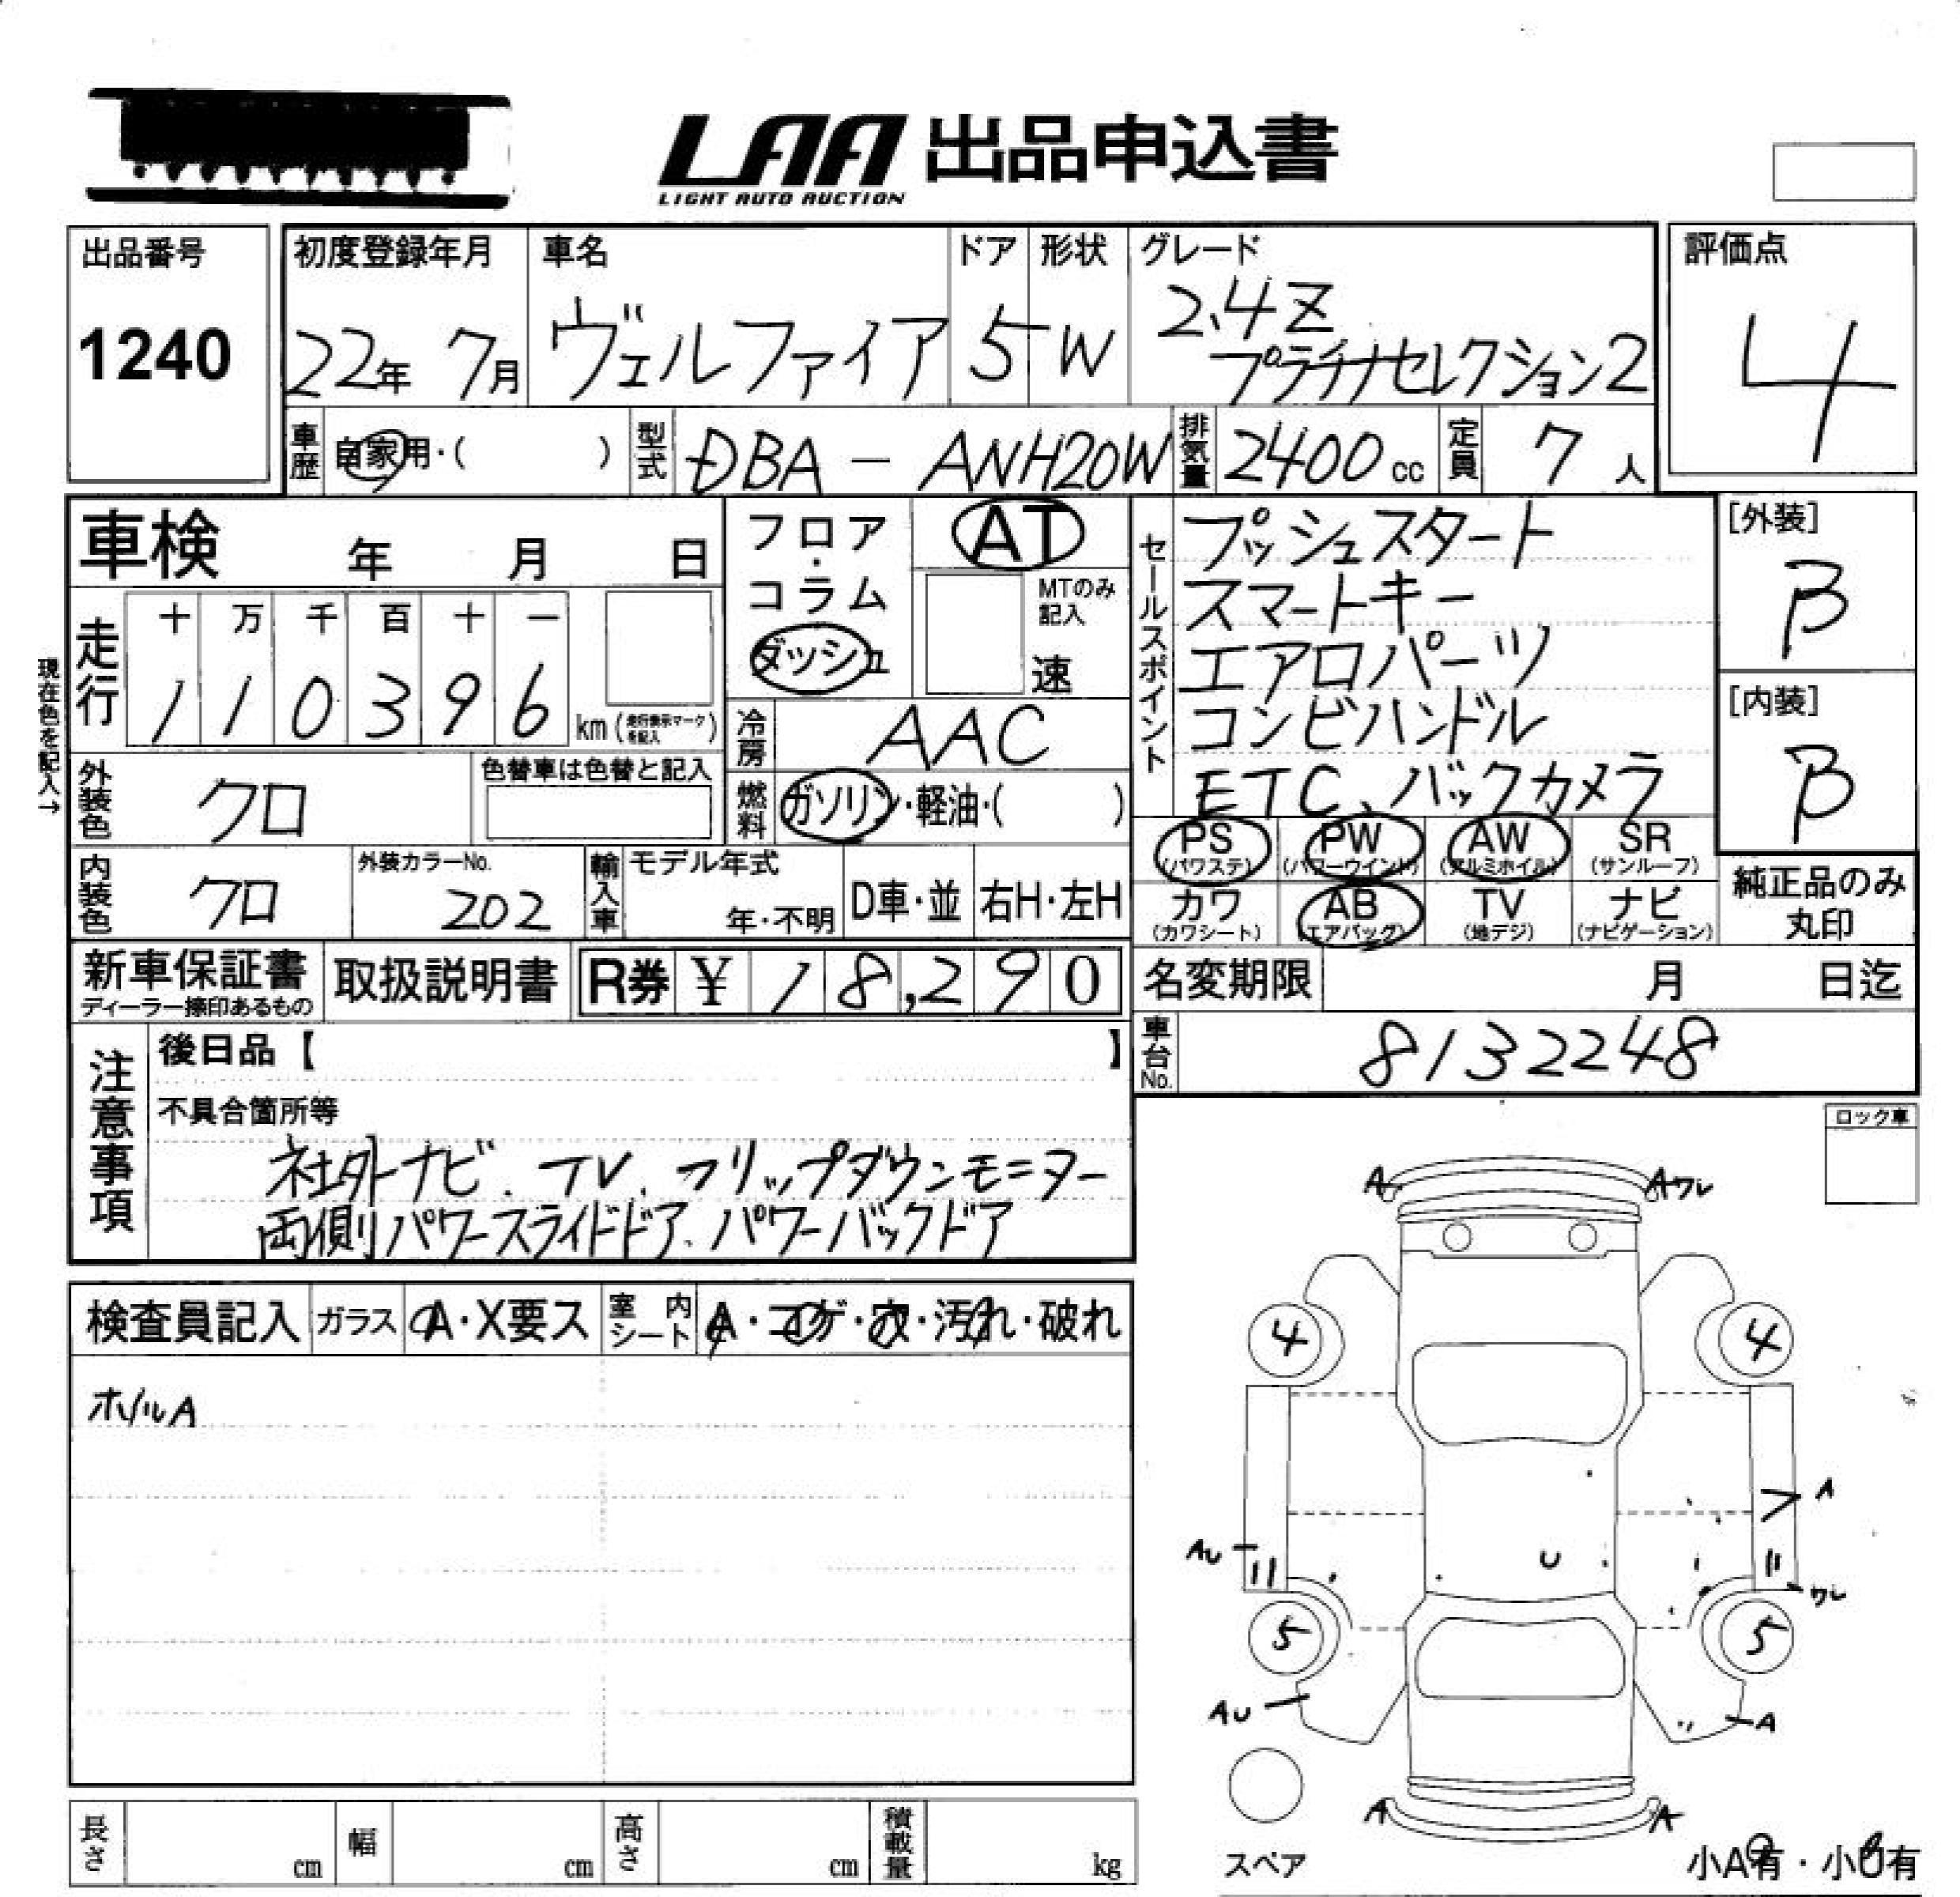 LAA 出品申込書
LIGHT AUTO AUCTION
出品番号
1240
初度登録年月
22年 7月
車名
ヴェルファイア
ドア
5
形状
W
グレード
2.4Z
プラチナセレクション2
評価点
4
車歴 自家用・( )
型式 DBA - ANH20W
排気量 2400 cc
定員 7 人
車検 年 月 日
現在色を記入→
走行
十 万 千 百 十 一
1 1 0 3 9 6 km (走行表示マークを記入)
フロア・コラム
ダッシュ
AT
MTのみ記入
速
冷房 AAC
燃料 ガソリン・軽油・( )
外装色 クロ
色替車は色替と記入
内装色 クロ
外装カラーNo.
202
輸入車
モデル年式
年・不明
D車・並
右H・左H
セールスポイント
プッシュスタート
スマートキー
エアロパーツ
コンビハンドル
ETC、バックカメラ
[外装]
B
[内装]
B
PS (パワステ)
PW (パワーウインド)
AW (アルミホイル)
SR (サンルーフ)
カワ (カワシート)
AB (エアバッグ)
TV (地デジ)
ナビ (ナビゲーション)
純正品のみ
丸印
新車保証書
ディーラー捺印あるもの
取扱説明書
R券 ¥ 18,290
名変期限 月 日迄
車台No. 8132248
注意事項
後日品【 】
不具合箇所等
社外ナビ、TV、フリップダウンモニター
両側パワースライドドア、パワーバックドア
ロック車
検査員記入
ガラス A・X要ス
室内シート A・コゲ・穴・汚れ・破れ
ホイルA
A
Aワレ
4
4
A
AU
U
ワレ
5
5
AU
A
A
A
スペア
小A有・小U有
長さ cm
幅 cm
高さ cm
積載量 kg